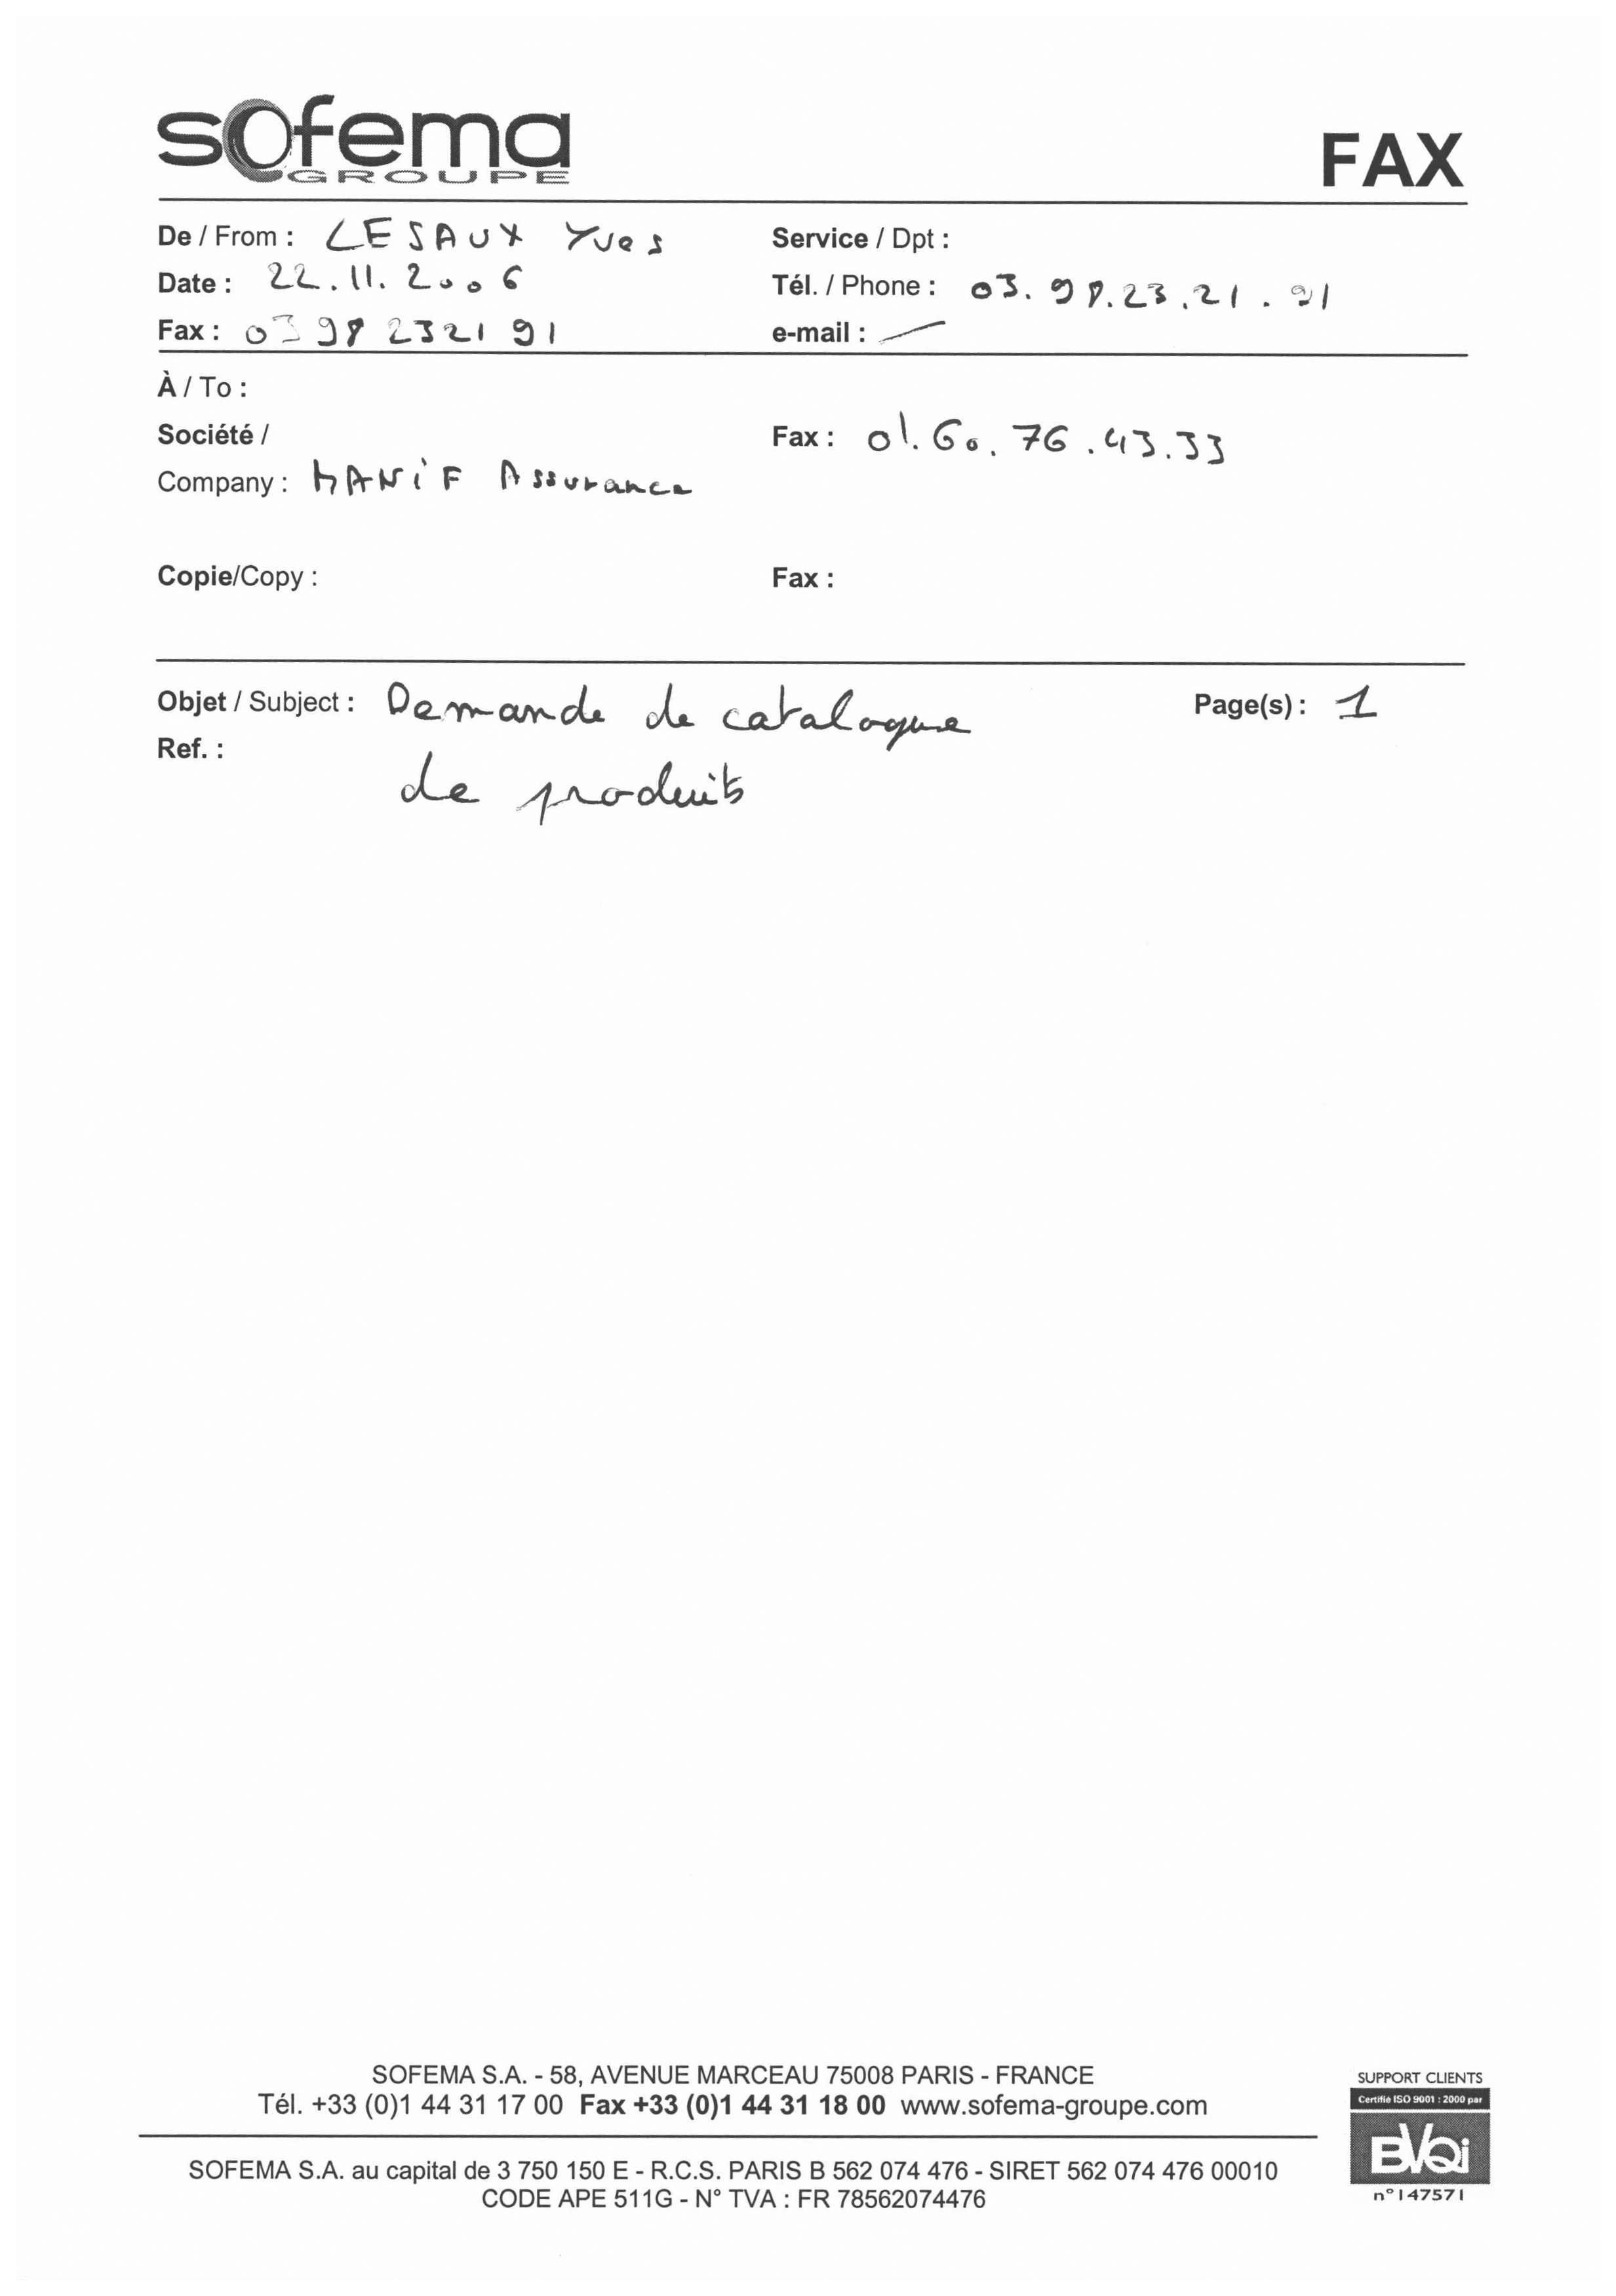 sofema
GROUPE
FAX
De / From : LESAUX Yves
Service / Dpt :
Date : 22.11.2006
Tél. / Phone : 03.98.23.21.91
Fax : 03 98 23 21 91
e-mail : —
À / To :
Société /
Fax : 01.60.76.43.33
Company : MANiF Assurance
Copie/Copy :
Fax :
Objet / Subject : Demande de catalogue
Page(s) : 1
Ref. :
de produits
SOFEMA S.A. - 58, AVENUE MARCEAU 75008 PARIS - FRANCE
Tél. +33 (0)1 44 31 17 00 Fax +33 (0)1 44 31 18 00 www.sofema-groupe.com
SOFEMA S.A. au capital de 3 750 150 E - R.C.S. PARIS B 562 074 476 - SIRET 562 074 476 00010
CODE APE 511G - N° TVA : FR 78562074476
SUPPORT CLIENTS
Certifié ISO 9001 : 2000 par
BVQi
n°147571